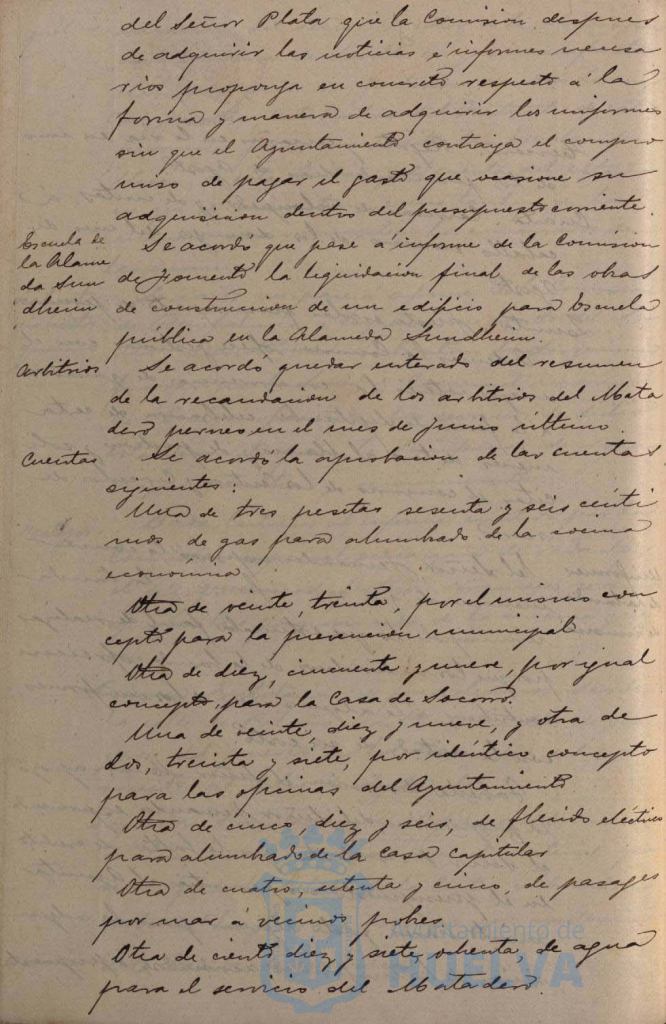 del Señor Plata que la Comision despues
de adquirir las noticias é informes necesa
rios proponga en concreto respecto á la
forma y manera de adquirir los uniformes
sin que el Ayuntamiento contraiga el compro
miso de pagar el gasto que ocasione su
adquisicion dentro del presupuesto corriente.
Escuela de
la Alame
da Sun
dheim
Se acordó que pase á informe de la Comision
de fomento la liquidacion final de las obras
de construccion de un edificio para Escuela
pública en la Alameda Sundheim.
Arbitrios
Se acordó quedar enterado del resumen
de la recaudacion de los arbitrios del Mata
dero pernes en el mes de junio último.
Cuentas
Se acordó la aprobacion de las cuentas
siguientes:
Una de tres pesetas sesenta y seis cénti
mos de gas para alumbrado de la cocina
económica
Otra de veinte, treinta, por el mismo con
cepto para la prevencion municipal
Otra de diez, cincuenta y nueve, por igual
concepto, para la Casa de Socorro.
Una de veinte, diez y nueve, y otra de
dos, treinta y siete, por idéntico concepto
para las oficinas del Ayuntamiento
Otra de cinco, diez y seis, de fluido eléctrico
para alumbrado de la Casa Capitular
Otra de cuatro, setenta y cinco, de pasages
por mar á vecinos pobres
Otra de ciento diez y siete, ochenta, de agua
para el servicio del Matadero.
Ayuntamiento de
HUELVA